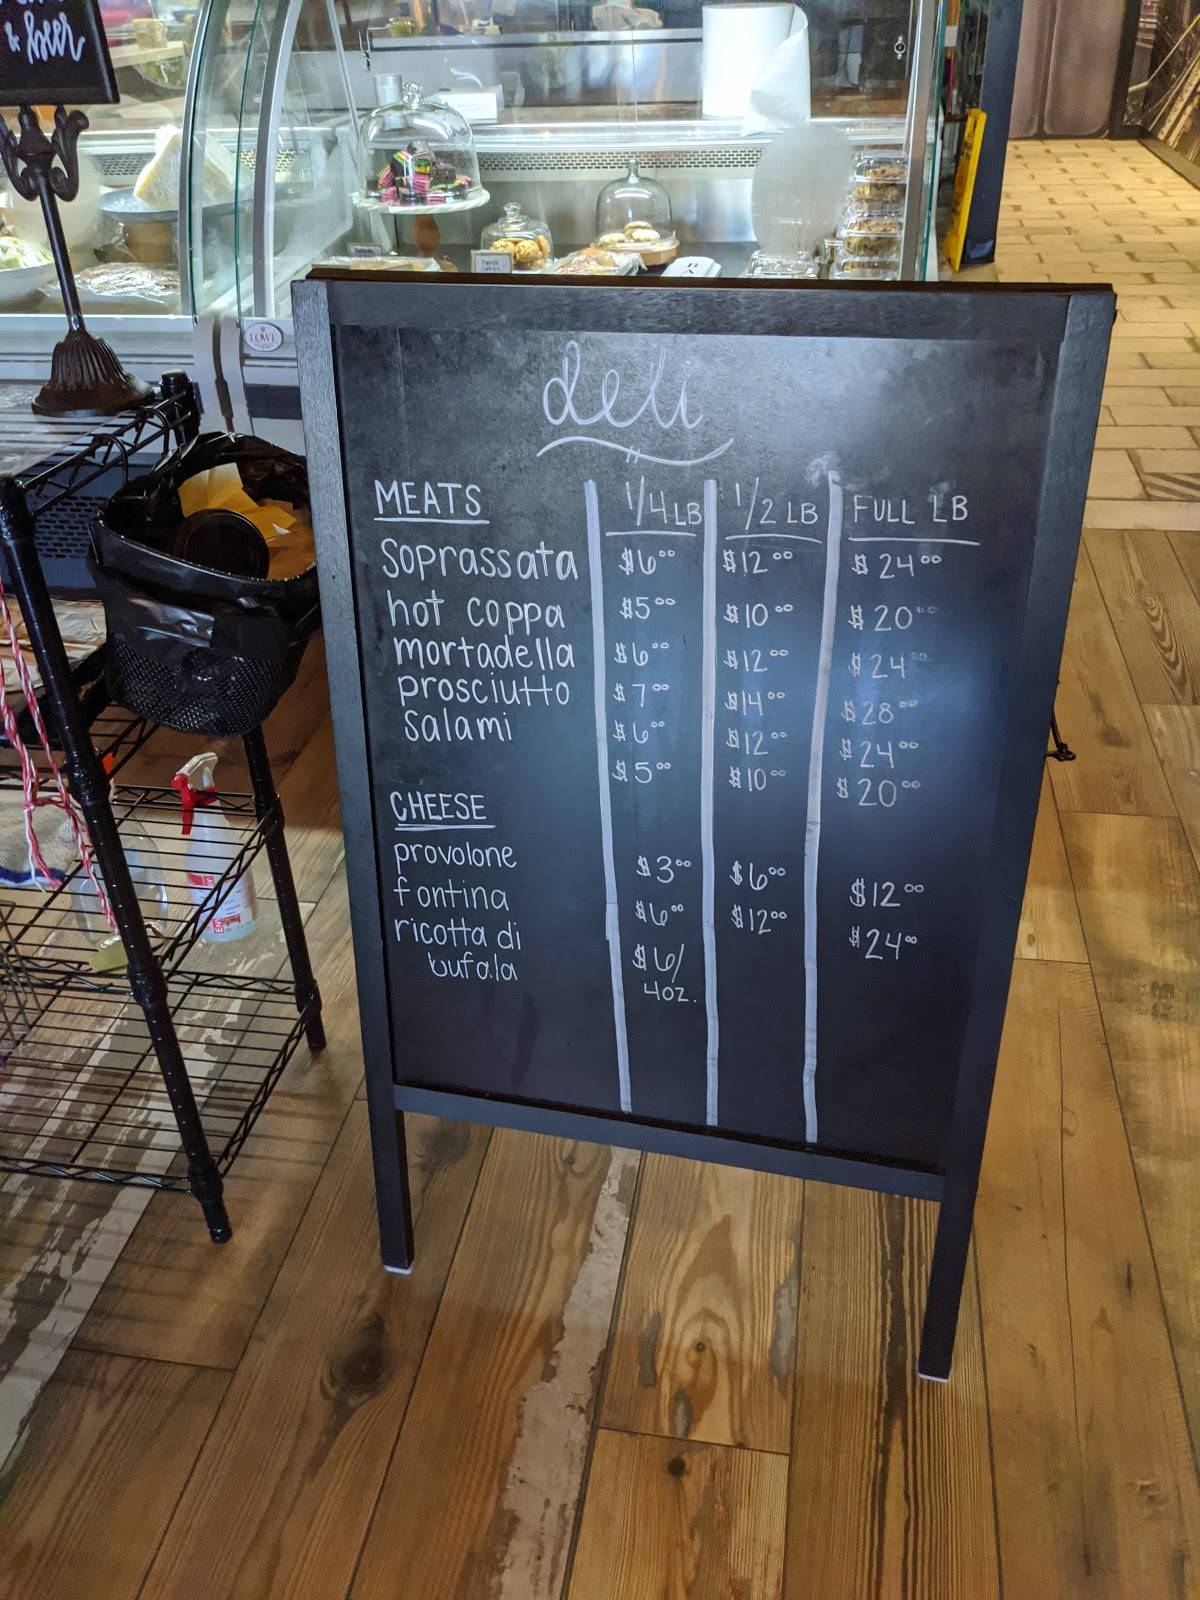 & beer
LOWE
deli
MEATS 1/4 LB 1/2 LB FULL LB
Soprassata $6.00 $12.00 $24.00
hot coppa $5.00 $10.00 $20.00
mortadella $6.00 $12.00 $24.00
prosciutto $7.00 $14.00 $28.00
salami $6.00 $12.00 $24.00
$5.00 $10.00 $20.00
CHEESE
provolone $3.00 $6.00 $12.00
fontina $6.00 $12.00 $24.00
ricotta di $6/
bufala 4oz.